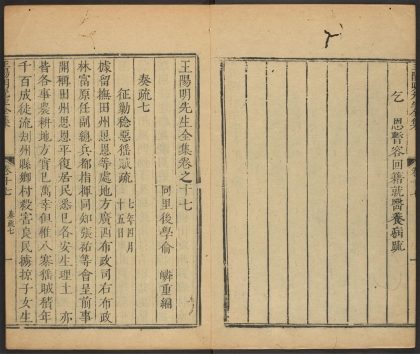 乞 恩暫容回籍就醫養病疏
王陽明先生全集卷之十七
同里後學俞 嶙重編
奏疏七
征勦稔惡猺賊疏 七年四月
十五日
據留撫田州地方廣西布政司右布政
林富原任副總兵都指揮同知張祐等會呈前事
開稱田州思恩平復居民悉已各安生理土 亦
皆各事農耕地方實已萬幸但惟八寨猺賊積年
千百成徒流刦州縣鄉村殺害良民擄掠子女生
王陽明先生全集
卷十七
奏疏七
一